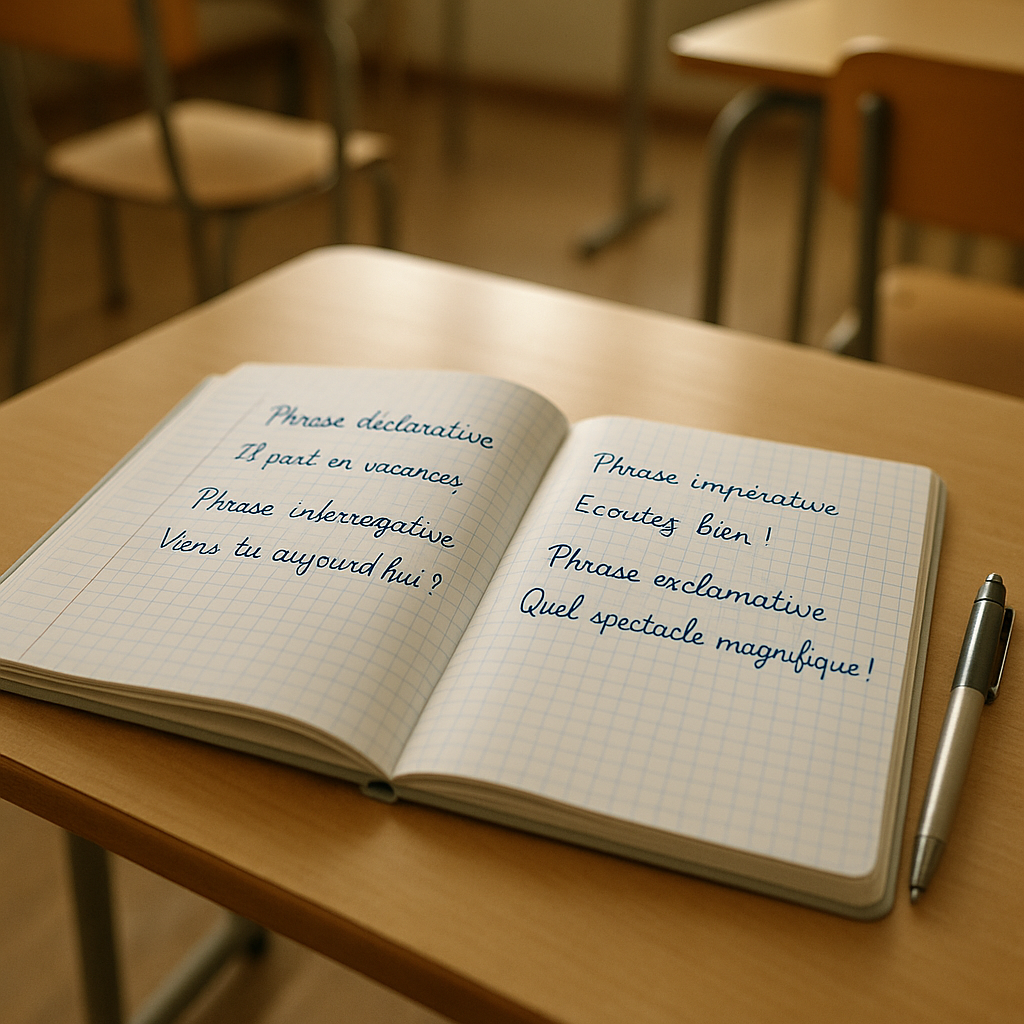 Phrase déclarative
Il part en vacances,
Phrase inferregative
Viens tu aujourd hui ?
Phrase impérative
Ecoutez bien !
Phrase exclamative
Quel spectacle magnifique !